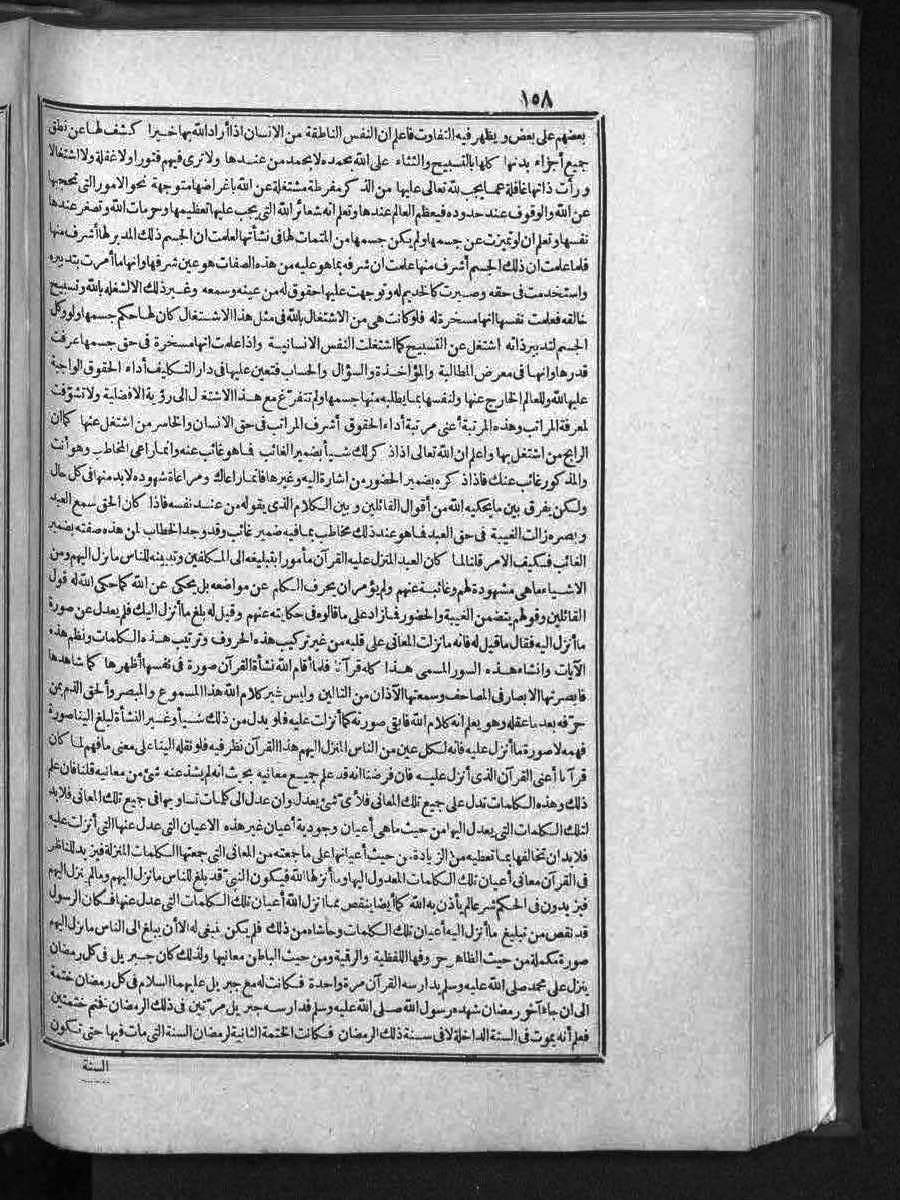 ١٥٨
بعضهم على بعض ويظهر فيه التفاوت فاعلم ان النفس الناطقة من الانسان اذا أراد الله بها خيرا كشف لها عن نطق
جميع أجزاء بدنها كلها بالتسبيح والثناء على الله بحمده لا بحمد من عندها ولا ترى فيهم فتورا ولا غفلة ولا اشتغالا
ورأت ذاتها غافلة عما يجب لله تعالى عليها من الذكر مفرطة مشتغلة عن الله باغراضها متوجهة نحو الامور التى تحجبها
عن الله والوقوف عند حدوده فيعظم العالم عندها وتعلم انه شعائر الله التى يجب عليها تعظيمها وحرمات الله وتصغر عندها
نفسها وتعلم ان لو تميزت عن جسمها ولم يكن جسمها من المتمات لها فى نشأتها لعامت ان الجسم ذلك المدبر لها أشرف منها
فلما علمت ان ذلك الجسم أشرف منها علمت ان شرفه بما هو عليه من هذه الصفات هو عين شرفها وانها ما أمرت بتدبيره
واستخدمت فى حقه وصيرت كالخديم له وتوجهت عليها حقوق له من عينه وسمعه وغير ذلك الا لشغله بالله وتسبيح
خالقه فعلمت نفسها انها مسخرة له فلو كانت هى من الاشتغال بالله فى مثل هذا الاشتغال كان لها حكم جسمها ولو وكل
الجسم لتدبير ذاته اشتغل عن التسبيح كما اشتغلت النفس الانسانية واذا علمت انها مسخرة فى حق جسمها عرفت
قدرها وانها فى معرض المطالبة والمؤاخذة والسؤال والحساب فتعين عليها فى دار التكليف أداء الحقوق الواجبة
عليها لله وللعالم الخارج عنها ولنفسها بما يطلبه منها جسمها ولم تتفرغ مع هذا الاشتغال الى رؤية الافضلية ولا تشوّفت
لمعرفة المراتب وهذه المرتبة أعنى مرتبة أداء الحقوق أشرف المراتب فى حق الانسان والخاسر من اشتغل عنها كما ان
الرابح من اشتغل بها واعلم ان الله تعالى اذا ذكر لك شيأ بضمير الغائب فما هو غائب عنه وانما راعى المخاطب وهو أنت
والمذكور غائب عنك فاذا ذكره بضمير الحضور من اشارة اليه وغيرها فانما راعاك ومراعاة شهوده لا بد منها فى كل حال
ولكن يفرق بين ما يحكيه الله من أقوال القائلين وبين الكلام الذى يقوله من عند نفسه فاذا كان الحق سمع العبد
وبصره زالت الغيبة فى حق العبد فما هو عند ذلك مخاطب بما فيه ضمير غائب وقد وجد الخطاب لمن هذه صفته بضمير
الغائب فكيف الامر قلنا لما كان العبد المنزل عليه القرآن مأمورا بتبليغه الى المكلفين وتبيينه للناس ما نزل اليهم ومن
الاشياء ما هى مشهودة لهم وغائبة عنهم ولم يؤمر ان يحرف الكلم عن مواضعه بل يحكى عن الله كما حكى الله له قول
القائلين وقولهم يتضمن الغيبة والحضور فما زاد على ما قالوه فى حكايته عنهم وقيل له بلغ ما أنزل اليك فلم يعدل عن صورة
ما أنزل اليه فقال ما قيل له فانه ما نزلت المعانى على قلبه من غير تركيب هذه الحروف وترتيب هذه الكلمات ونظم هذه
الآيات وانشاء هذه السور المسمى هذا كله قرآنا فلما أقام الله نشأة القرآن صورة فى نفسها أظهرها كما شاهدها
فابصرتها الابصار فى المصاحف وسمعتها الآذان من التالين وليس غير كلام الله هذا المسموع والمبصر وألحق الذم بمن
حرّفه بعد ما عقله وهو يعلم انه كلام الله فابقى صورته كما أنزلت عليه فلو بدل من ذلك شيأ وغير النشأة لبلغ الينا صورة
فهمه لا صورة ما أنزل عليه فانه لكل عين من الناس المنزل اليهم هذا القرآن نظر فيه فلو نقله الينا على معنى ما فهم لما كان
قرآنا أعنى القرآن الذى أنزل عليه فان فرضنا انه قد علم جميع معانيه بحيث انه لم يشذ عنه شئ من معانيه قلنا فان علم
ذلك وهذه الكلمات تدل على جميع تلك المعانى فلأىّ شئ يعدل وان عدل الى كلمات تساويها فى جميع تلك المعانى فلا بد
لتلك الكلمات التى يعدل اليها من حيث ما هى أعيان وجودية أعيان غير هذه الاعيان التى عدل عنها التى أنزلت عليه
فلا بد ان تخالفها بما تعطيه من الزيادة من حيث أعيانها على ما جمعته من المعانى التى جمعتها الكلمات المنزلة فيزيد للناظر
فى القرآن معانى أعيان تلك الكلمات المعدول اليها وما أنزلها الله فيكون النبىّ قد بلغ للناس ما نزل اليهم وما لم ينزل اليهم
فيزيدون فى الحكم شرعا لم يأذن به الله كما أيضا ينقص مما أنزل الله أعيان تلك الكلمات التى عدل عنها فكان الرسول
قد نقص من تبليغ ما أنزل اليه أعيان تلك الكلمات وحاشاه من ذلك فلم يكن ينبغى له الا أن يبلغ الى الناس ما نزل اليهم
صورة مكملة من حيث الظاهر حروفها اللفظية والرقية ومن حيث الباطن معانيها ولذلك كان جبريل فى كل رمضان
ينزل على محمد صلى الله عليه وسلم يدارسه القرآن مرة واحدة فكانت له مع جبريل عليهما السلام فى كل رمضان ختمة
الى ان جاء آخر رمضان شهده رسول الله صلى الله عليه وسلم فدارسه جبريل مرّتين فى ذلك الرمضان فختم ختمتين
فعلم أنه يموت فى السنة الداخلة لا فى سنة ذلك الرمضان فكانت الختمة الثانية لرمضان السنة التى مات فيها حتى تكون
السنة